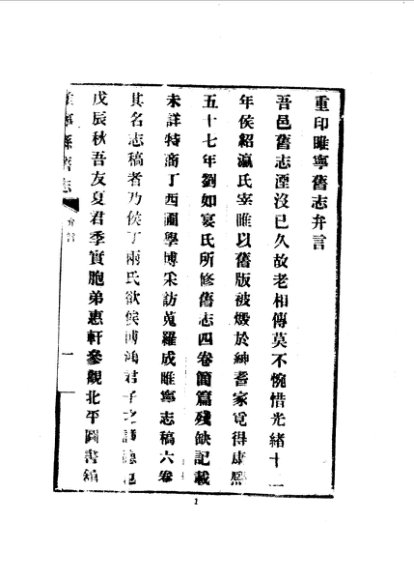 重印睢寧舊志弁言
吾邑舊志湮沒已久故老相傳莫不惋惜光緒十二
年侯紹瀛氏宰睢以舊版被燬於紳耆家覓得康熙
五十七年劉如宴氏所修舊志四卷簡篇殘缺記載
未詳特商丁西圃學博采訪蒐羅成睢寧志稿六卷
其名志稿者乃侯丁兩氏欲俟博鴻君子之德也
戊辰秋吾友夏君季實胞弟惠軒參觀北平圖書館
睢寧縣舊志 弁言 一
1